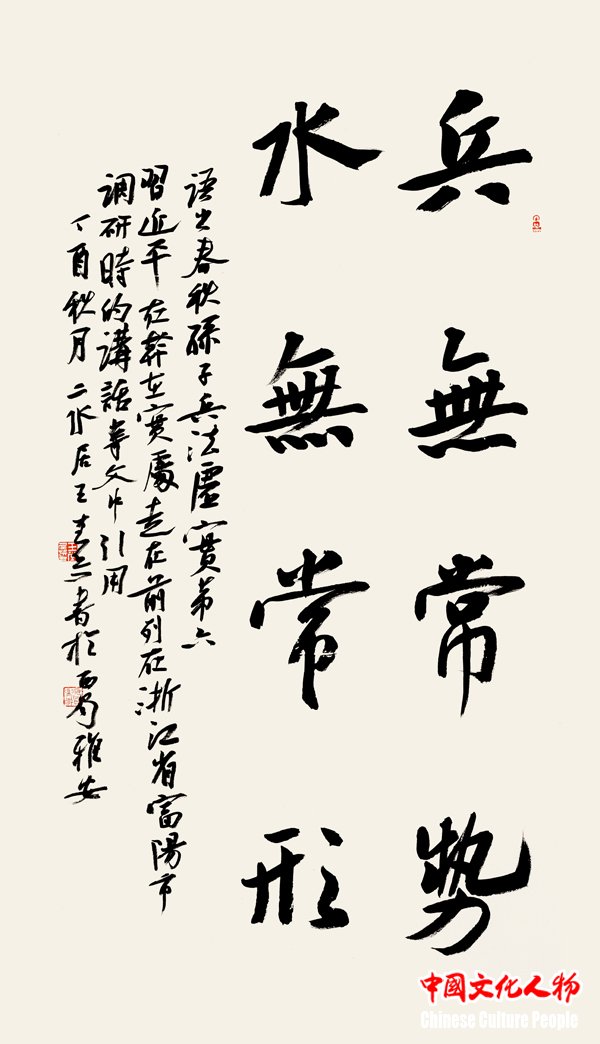 兵無常勢
水無常形
语出春秋孫子兵法虛實第六
習近平在幹在實處走在前列在浙江省富陽市
调研時的講話等文中引用
丁酉秋月二水居王書於西蜀雅安
中國文化人物
Chinese Culture People